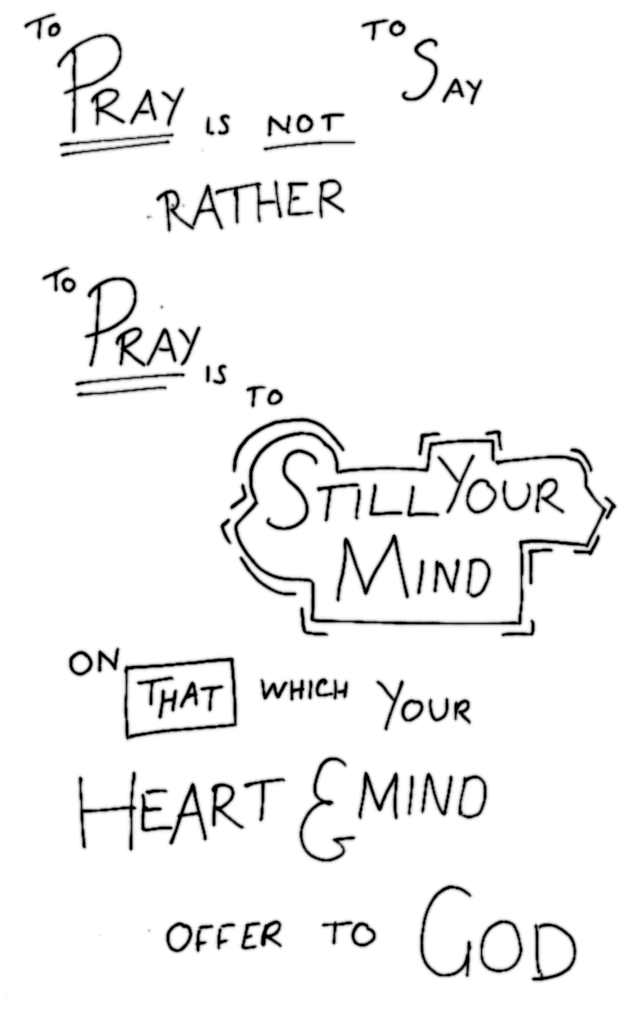 TO PRAY IS NOT TO SAY
RATHER
TO PRAY IS TO
STILL YOUR
MIND
ON THAT WHICH YOUR
HEART & MIND
OFFER TO GOD